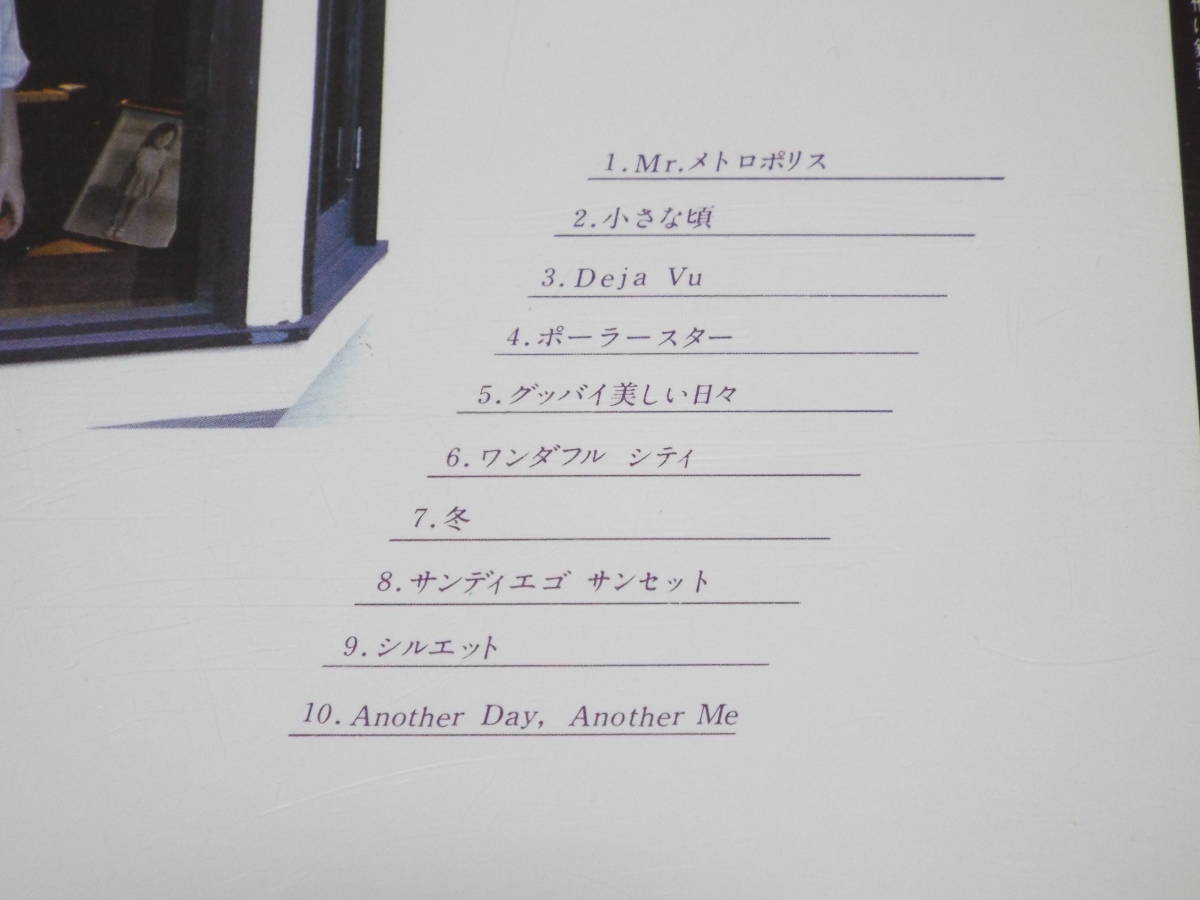 1.Mr.メトロポリス
2.小さな頃
3.Deja Vu
4.ポーラースター
5.グッバイ美しい日々
6.ワンダフル シティ
7.冬
8.サンディエゴ サンセット
9.シルエット
10.Another Day, Another Me